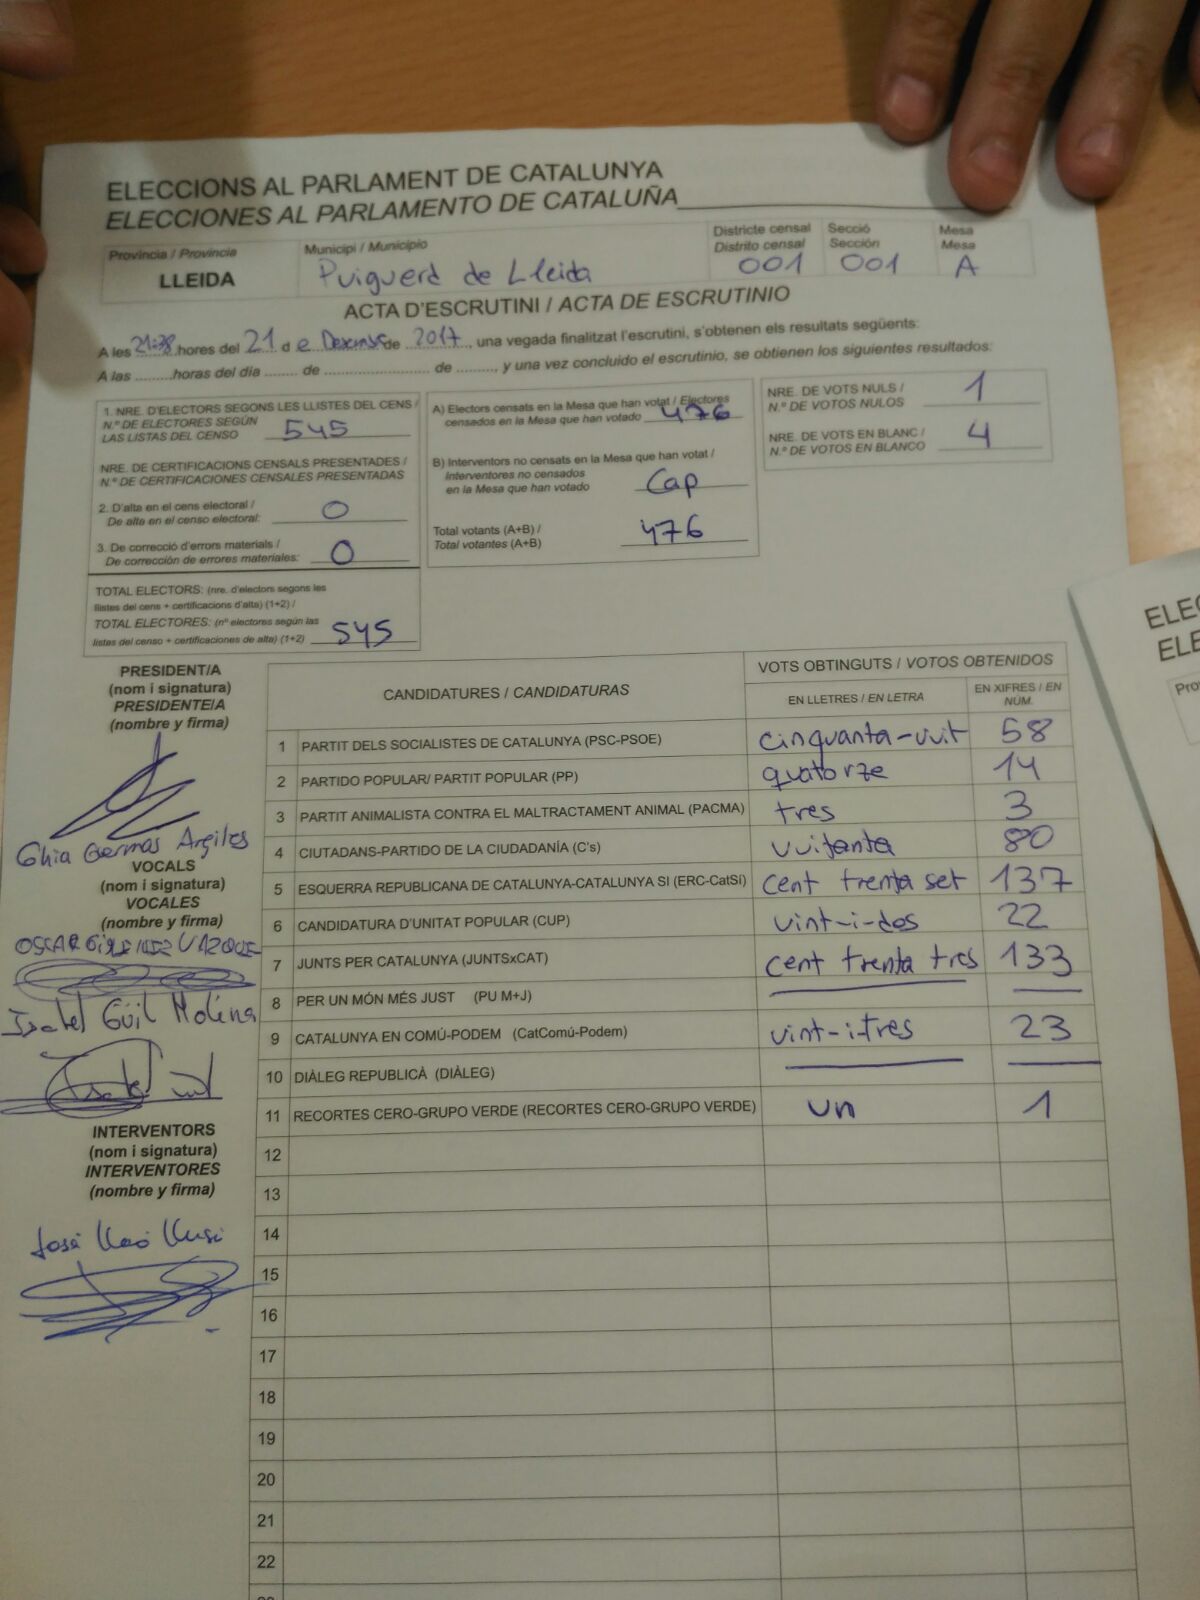 ELECCIONS AL PARLAMENT DE CATALUNYA
ELECCIONES AL PARLAMENTO DE CATALUÑA
Província / Provincia
LLEIDA
Municipi / Municipio
Puigverd de Lleida
Districte censal
Distrito censal
001
Secció
Sección
001
Mesa
Mesa
A
ACTA D'ESCRUTINI / ACTA DE ESCRUTINIO
A les 21:38 hores del 21 d e Desembre de 2017, una vegada finalitzat l'escrutini, s'obtenen els resultats següents:
A las .........horas del día ........ de ............................ de .........., y una vez concluido el escrutinio, se obtienen los siguientes resultados:
1. NRE. D'ELECTORS SEGONS LES LLISTES DEL CENS /
N.º DE ELECTORES SEGÚN
LAS LISTAS DEL CENSO 545
NRE. DE CERTIFICACIONS CENSALS PRESENTADES /
N.º DE CERTIFICACIONES CENSALES PRESENTADAS
2. D'alta en el cens electoral /
De alta en el censo electoral: 0
3. De correcció d'errors materials /
De corrección de errores materiales: 0
TOTAL ELECTORS: (nre. d'electors segons les
llistes del cens + certificacions d'alta) (1+2) /
TOTAL ELECTORES: (nº electores según las
listas del censo + certificaciones de alta) (1+2) 545
A) Electors censats en la Mesa que han votat / Electores
censados en la Mesa que han votado 476
B) Interventors no censats en la Mesa que han votat /
Interventores no censados
en la Mesa que han votado Cap
Total votants (A+B) /
Total votantes (A+B) 476
NRE. DE VOTS NULS /
N.º DE VOTOS NULOS 1
NRE. DE VOTS EN BLANC /
N.º DE VOTOS EN BLANCO 4
PRESIDENT/A
(nom i signatura)
PRESIDENTE/A
(nombre y firma)
VOCALS
(nom i signatura)
VOCALES
(nombre y firma)
OSCAR
Isabel Güil Molina
INTERVENTORS
(nom i signatura)
INTERVENTORES
(nombre y firma)
José
CANDIDATURES / CANDIDATURAS
VOTS OBTINGUTS / VOTOS OBTENIDOS
EN LLETRES / EN LETRA
EN XIFRES / EN NÚM.
1 PARTIT DELS SOCIALISTES DE CATALUNYA (PSC-PSOE) cinquanta-vuit 58
2 PARTIDO POPULAR/ PARTIT POPULAR (PP) quatorze 14
3 PARTIT ANIMALISTA CONTRA EL MALTRACTAMENT ANIMAL (PACMA) tres 3
4 CIUTADANS-PARTIDO DE LA CIUDADANÍA (C's) vuitanta 80
5 ESQUERRA REPUBLICANA DE CATALUNYA-CATALUNYA SI (ERC-CatSí) cent trenta set 137
6 CANDIDATURA D'UNITAT POPULAR (CUP) vint-i-dos 22
7 JUNTS PER CATALUNYA (JUNTSxCAT) cent trenta tres 133
8 PER UN MÓN MÉS JUST (PU M+J)
9 CATALUNYA EN COMÚ-PODEM (CatComú-Podem) vint-i-tres 23
10 DIÀLEG REPUBLICÀ (DIÀLEG)
11 RECORTES CERO-GRUPO VERDE (RECORTES CERO-GRUPO VERDE) un 1
12
13
14
15
16
17
18
19
20
21
22